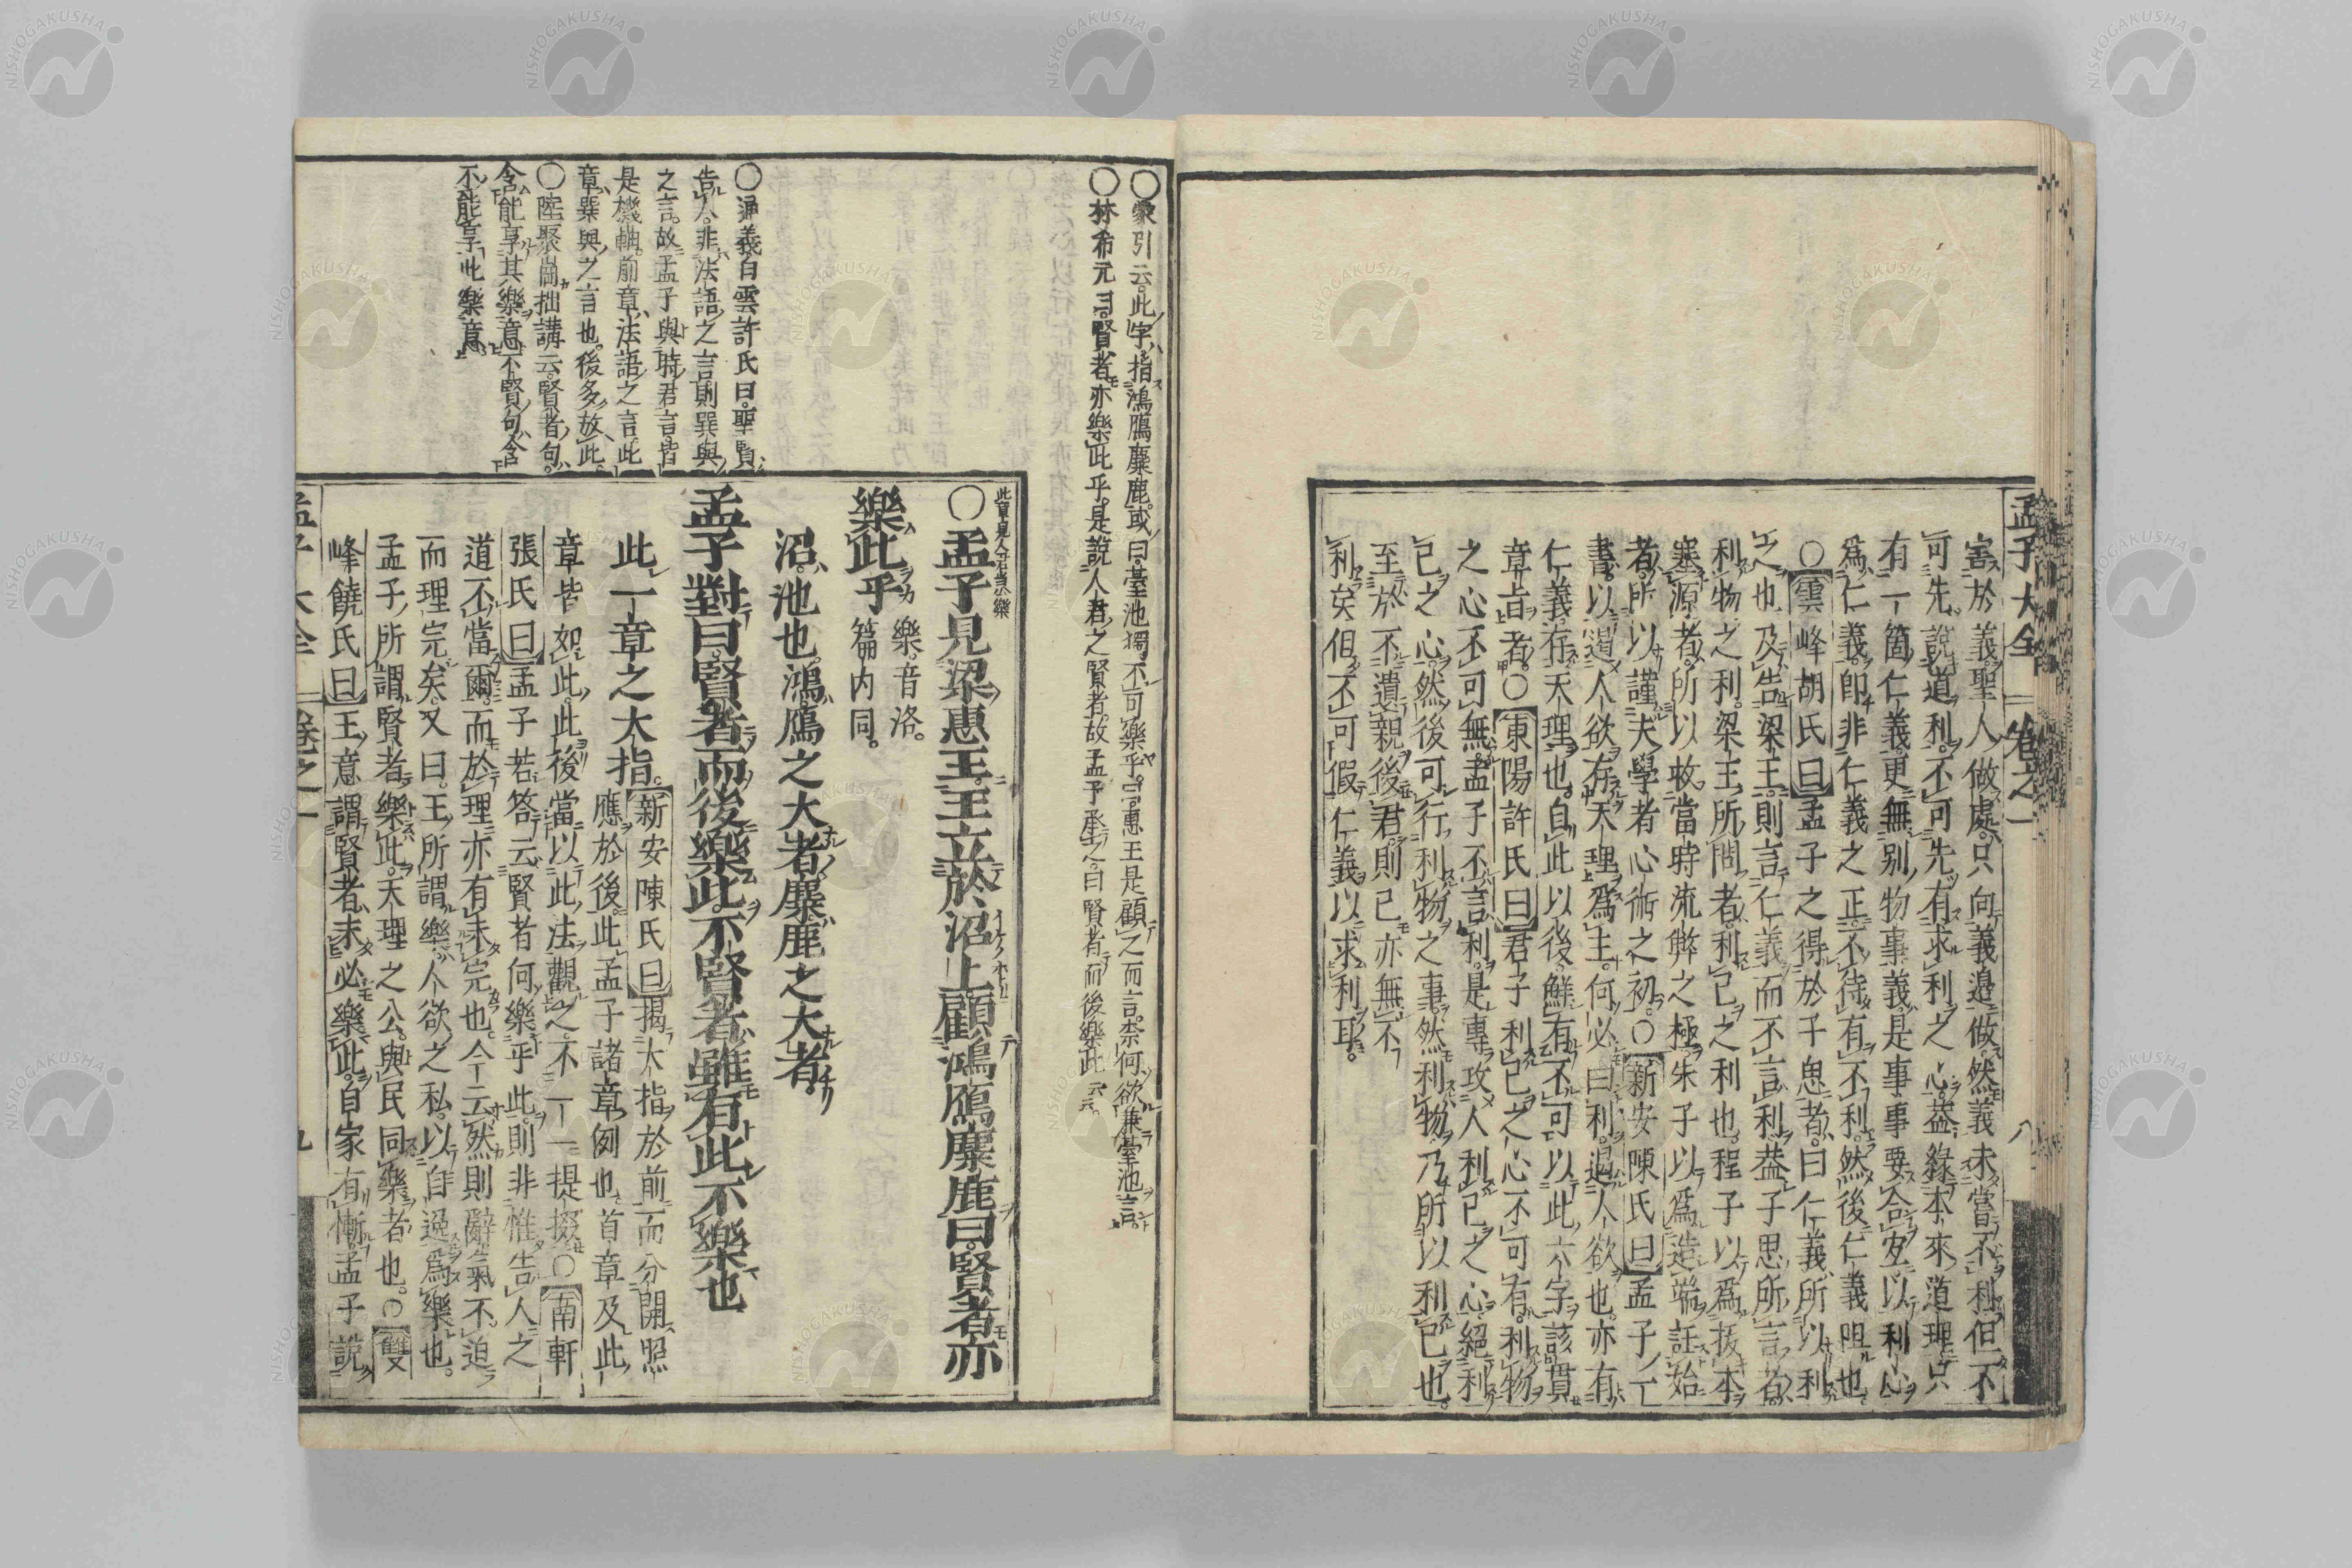 孟子大全 卷之一 八
害於義聖人做處只向義邊做然義未嘗不利但不
可先說道利不可先有求利之心蓋緣本來道理只
有一箇仁義更無別物事義是事事要合宜以利心
爲仁義即非仁義之正不待有不利然後仁義阻也
○雲峰胡氏曰孟子之得於子思者曰仁義所以利
之也及告梁王則言仁義而不言利蓋子思所言者
利物之利梁王所問者利己之利也程子以爲拔本
塞源者所以救當時流弊之極朱子以爲造端託始
者所以謹夫學者心術之初○新安陳氏曰孟子一
書以遏人欲存天理爲主何必曰利遏人欲也亦有
仁義存天理也自此以後鮮有不可以此六字該貫
章旨者○東陽許氏曰君子利己之心不可有利物
之心不可無孟子不言利是專攻人利己之心絕利
己之心然後可行利物之事然利物乃所以利己也
至於不遺親後君則己亦無不
利矣但不可假仁義以求利耳
○蒙引云此字指鴻鴈麋鹿或曰臺池獨不可樂乎曰惠王是顧之而言奈何欲兼臺池言
○林希元曰賢者亦樂此乎是說人君之賢者故孟子承之曰賢者而後樂此云云
○通義白雲許氏曰聖賢
告人非法語之言則巽與
之言故孟子與時君言皆
是機軸前章法語之言此
章巽與之言也後多放此
○陸聚崗拙講云賢者句
含能享其樂意不賢句含
不能享此樂意
此章見人君當樂
○孟子見梁惠王王立於沼上顧鴻鴈麋鹿曰賢者亦
樂此乎 樂音洛
篇内同
沼池也鴻鴈之大者麋鹿之大者
孟子對曰賢者而後樂此不賢者雖有此不樂也
此一章之大指 新安陳氏曰揭大指於前而分開照
應於後此孟子諸章例也首章及此
章皆如此此後當以此法觀之不一一提掇○南軒
張氏曰孟子若答云賢者何樂乎此則非惟告人之
道不當爾而於理亦有未完也今云然則辭氣不迫
而理完矣又曰王所謂樂人欲之私以自逸爲樂也
孟子所謂賢者樂此天理之公與民同樂者也○雙
峰饒氏曰王意謂賢者未必樂此自家有慚孟子說
孟子大全 卷之一 九